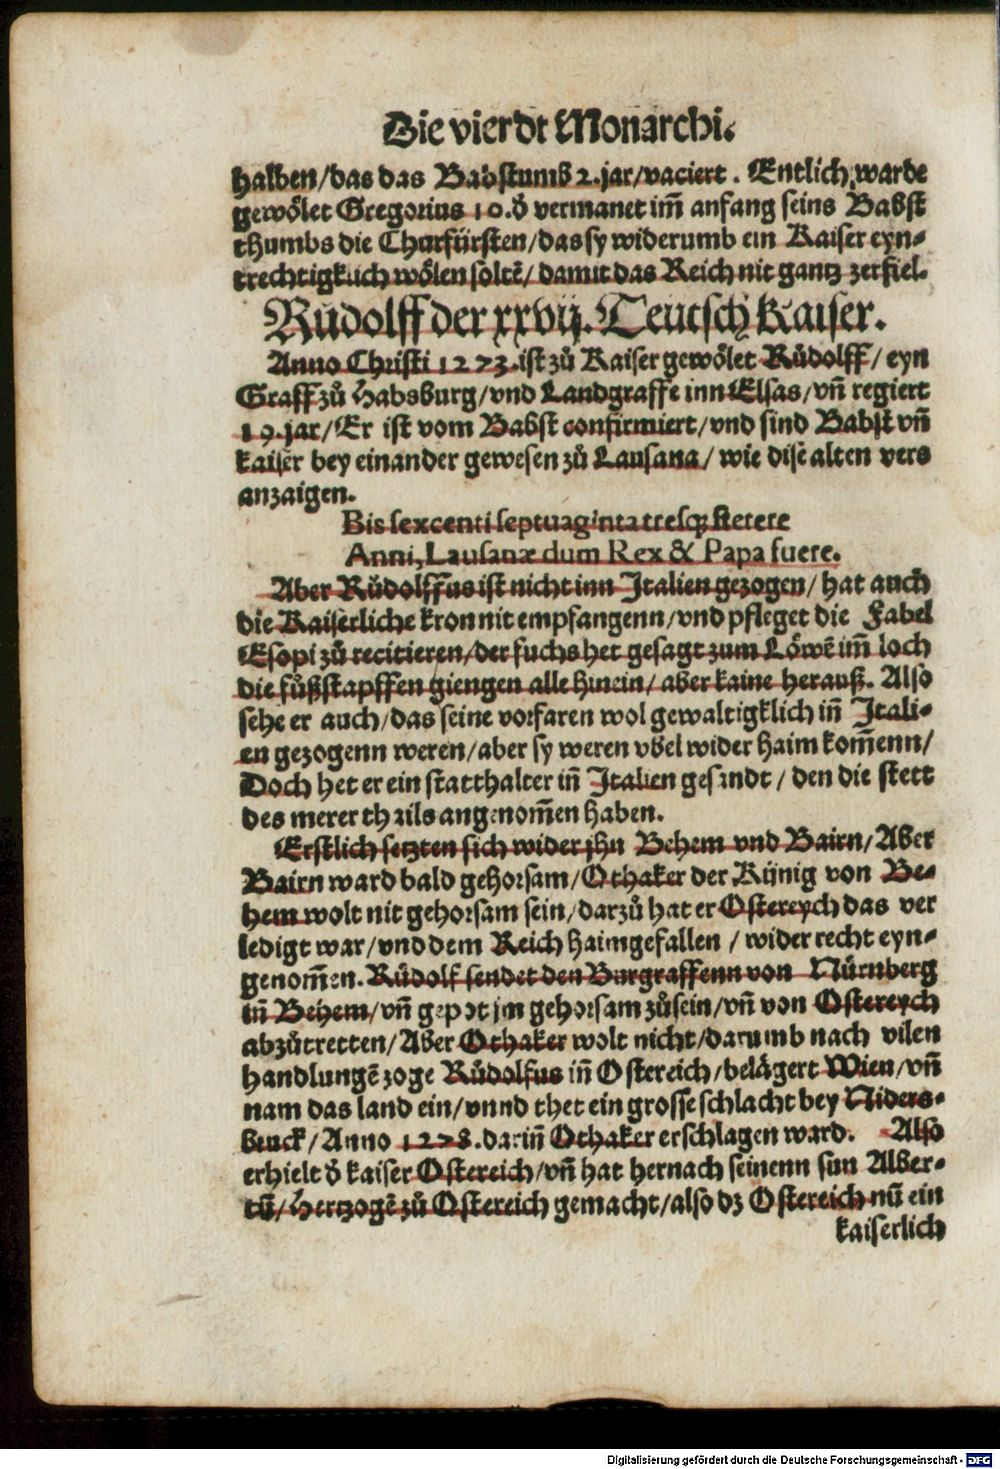 Die vierdt Monarchi.
halben/das das Babstumb 2.jar/vaciert. Entlich warde
gewölet Gregorius 10.d̊ vermanet im̃ anfang seins Babst
thumbs die Churfürsten/das sy widerumb ein Kaiser eyn⸗
trechtigklich wölen soltẽ/ damit das Reich nit gantz zerfiel.
Růdolff der xxvij. Teutsch Kaiser.
Anno Christi 1273.ist zů Kaiser gewölet Růdolff/ eyn
Graff zů Habsburg/vnd Landgraffe inn Elsas/vñ regiert
19.jar/Er ist vom Babst confirmiert/vnd sind Babst vñ
kaiser bey einander gewesen zů Lausana/ wie dise alten vers
anzaigen.
Bis sexcenti septuaginta tresq; stetere
Anni, Lausanæ dum Rex & Papa fuere.
Aber Růdolffus ist nicht inn Italien gezogen/ hat auch
die Kaiserliche kron nit empfangenn/vnd pfleget die Fabel
Esopi zů recitieren/der fuchs het gesagt zum Löwẽ im̃ loch
die fůßstapffen giengen alle hinein/ aber kaine herauß. Also
sehe er auch/das seine vorfaren wol gewaltigklich iñ Itali⸗
en gezogenn weren/aber sy weren vbel wider haim kom̃enn/
Doch het er ein statthalter iñ Italien gesandt/ den die stett
des merer thails angenom̃en haben.
Erstlich setzten sich wider jhn Behem vnd Bairn/Aber
Bairn ward bald gehorsam/Othaker der Künig von Be⸗
hem wolt nit gehorsam sein/darzů hat er Ostereych das ver
ledigt war/vnd dem Reich haimgefallen/ wider recht eyn⸗
genom̃en. Růdolf sendet den Burgraffenn von Nürnberg
iñ Behem/vñ gepot jm gehorsam zůsein/vñ von Ostereych
abzůtretten/Aber Othaker wolt nicht/darumb nach vilen
handlungẽ zoge Růdolfus iñ Ostereich/belägert Wien/vñ
nam das land ein/vnnd thet ein grosse schlacht bey Niders⸗
bruck/Anno 1278.dariñ Othaker erschlagen ward. Also
erhielt d̊ kaiser Ostereich/vñ hat hernach seinenn sun Alber⸗
tũ/Hertzogẽ zů Ostereich gemacht/also dz Ostereich nũ ein
kaiserlich
Digitalisierung gefördert durch die Deutsche Forschungsgemeinschaft - DFG